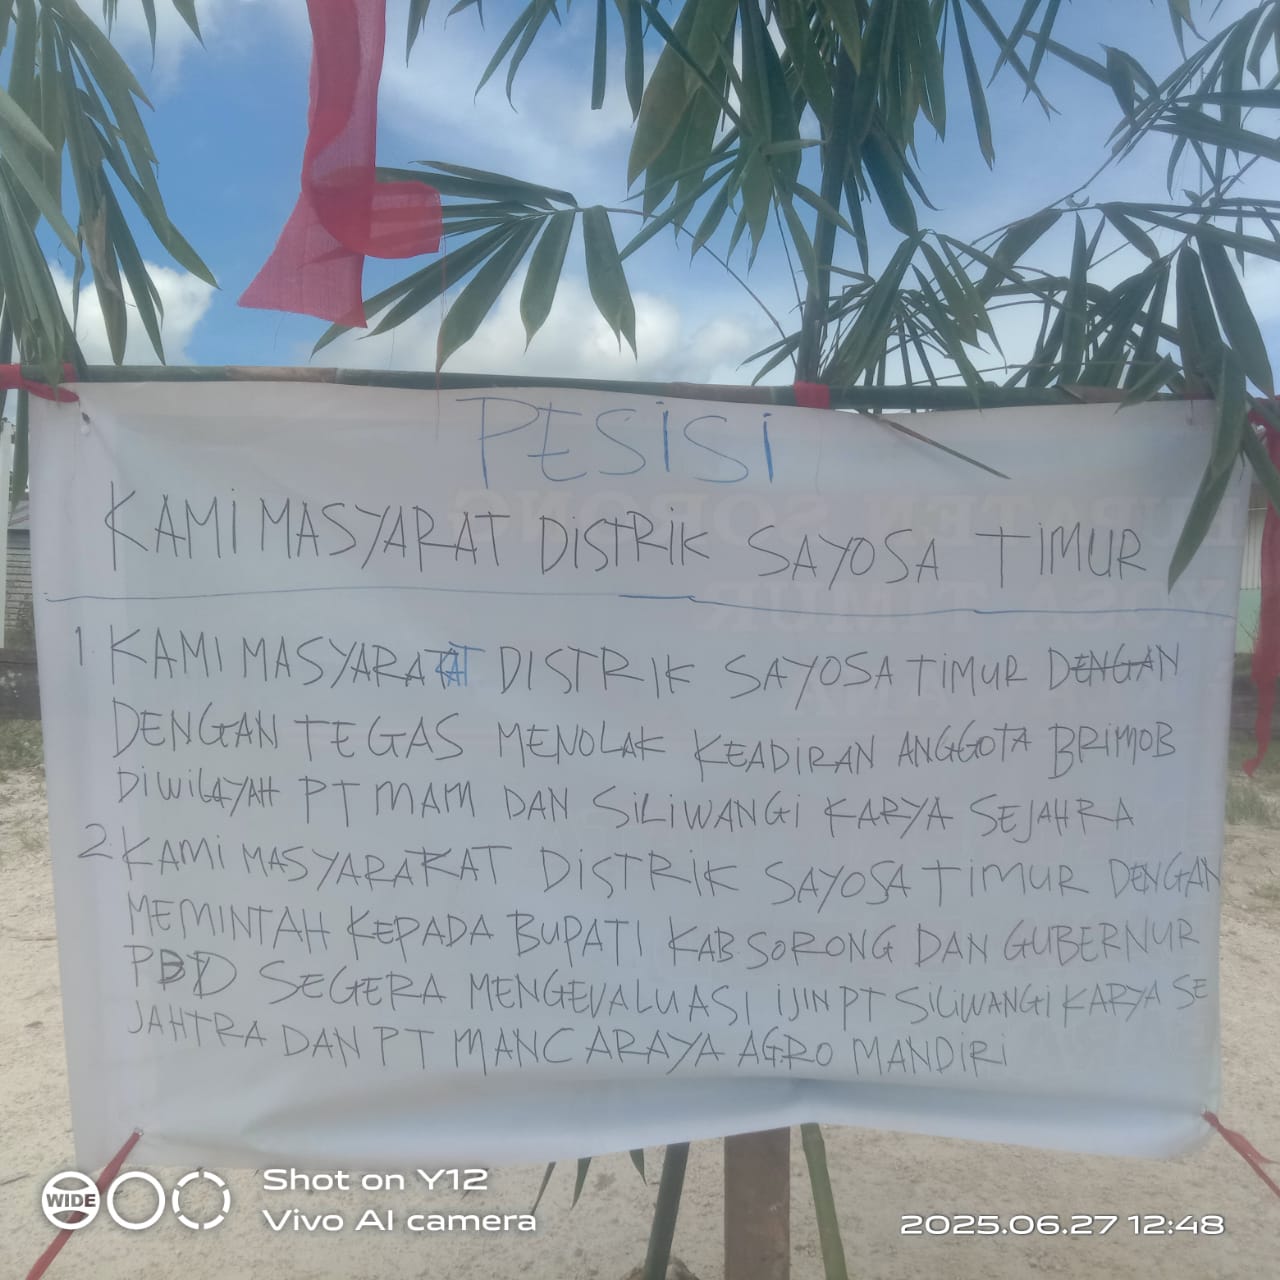 PESISI
KAMI MASYARAT DISTRIK SAYOSA TIMUR
1. KAMI MASYARAKAT DISTRIK SAYOSA TIMUR DENGAN
DENGAN TEGAS MENOLAK KEADIRAN ANGGOTA BRIMOB
DIWILAYAH PT MAM DAN SILIWANGI KARYA SEJAHRA
2 KAMI MASYARAKAT DISTRIK SAYOSA TIMUR DENGAN
MEMINTAH KEPADA BUPATI KAB SORONG DAN GUBERNUR
PBD SEGERA MENGEVALUASI IJIN PT SILIWANGI KARYA SE
JAHTRA DAN PT MANCARAYA AGRO MANDIRI
WIDE
Shot on Y12
Vivo AI camera
2025.06.27 12:48